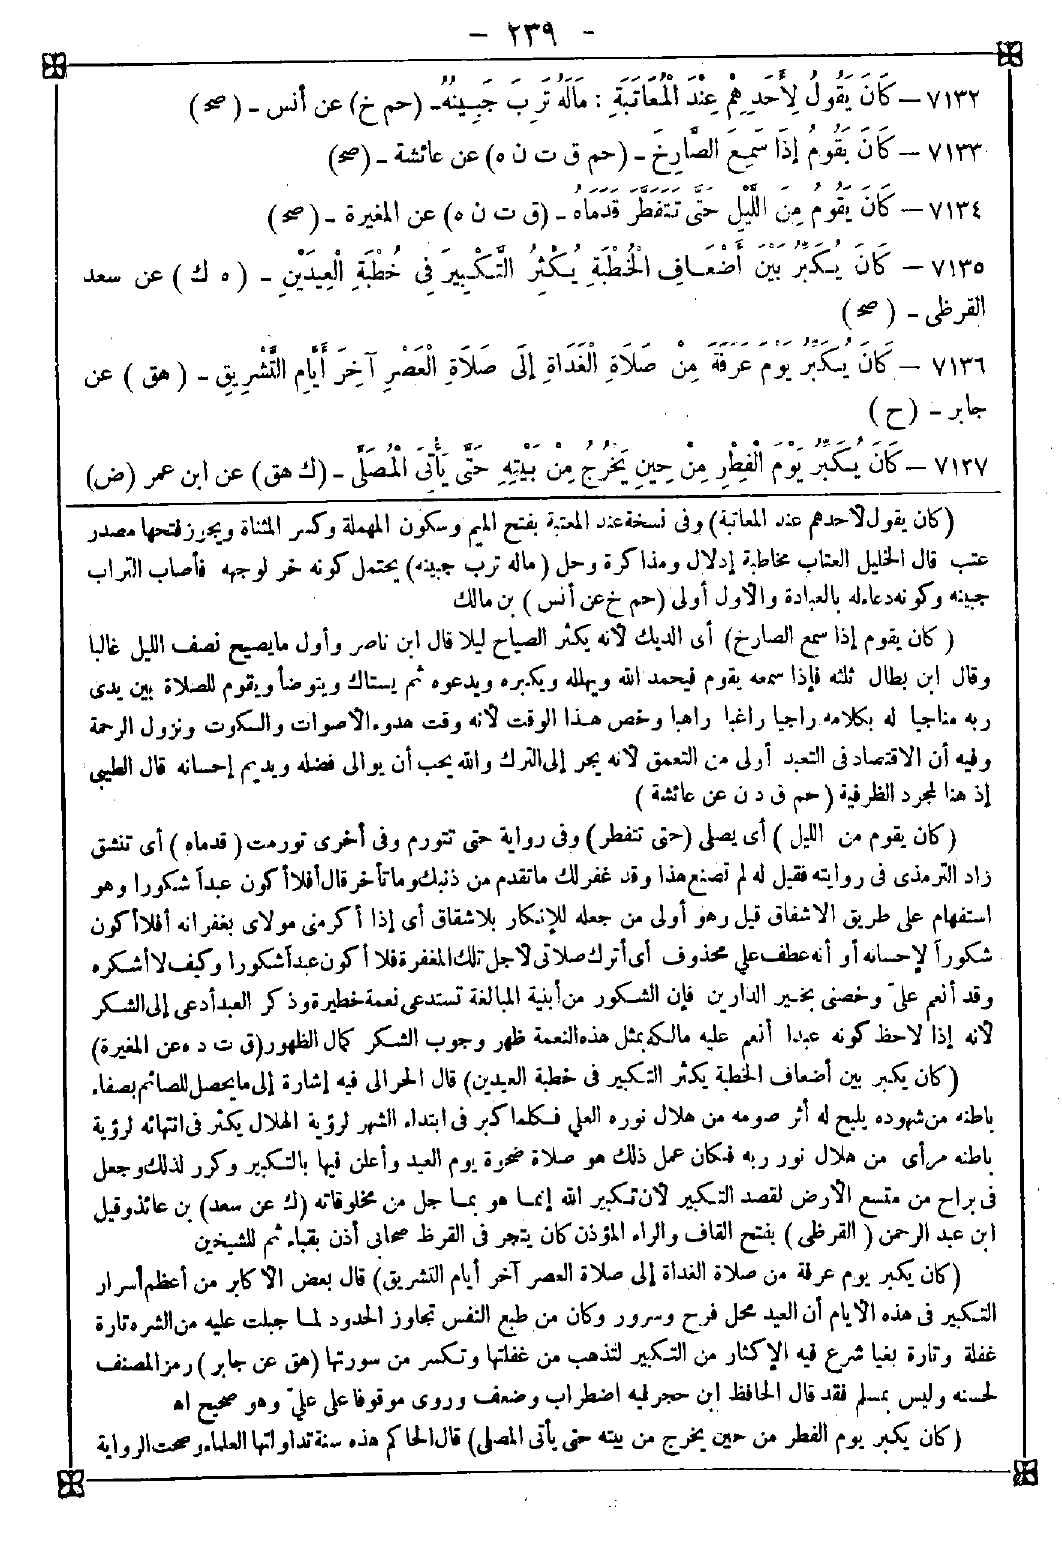 - ٢٣٩ -
٧١٣٢ — كَانَ يَقُولُ لِأَحَدِهِمْ عِنْدَ الْمُعَاتَبَةِ : مَالَهُ تَرِبَ جَبِينُهُ - (حم خ) عن أنس - (صح)
٧١٣٣ — كَانَ يَقُومُ إِذَا سَمِعَ الصَّارِخَ - (حم ق ت ن ه) عن عائشة - (صح)
٧١٣٤ — كَانَ يَقُومُ مِنَ اللَّيْلِ حَتَّى تَتَفَطَّرَ قَدَمَاهُ - (ق ت ن ه) عن المغيرة - (صح)
٧١٣٥ — كَانَ يُكَبِّرُ بَيْنَ أَضْعَافِ الْخُطْبَةِ يُكْثِرُ التَّكْبِيرَ فِى خُطْبَةِ الْعِيدَيْنِ - (ه ك) عن سعد
القرظى - (صح)
٧١٣٦ — كَانَ يُكَبِّرُ يَوْمَ عَرَفَةَ مِنْ صَلَاةِ الْغَدَاةِ إِلَى صَلَاةِ الْعَصْرِ آخِرَ أَيَّامِ التَّشْرِيقِ - (هق) عن
جابر - (ح)
٧١٣٧ — كَانَ يُكَبِّرُ يَوْمَ الْفِطْرِ مِنْ حِينِ يَخْرُجُ مِنْ بَيْتِهِ حَتَّى يَأْتِىَ الْمُصَلَّى - (ك هق) عن ابن عمر (ض)
(كان يقول لأحدهم عند المعاتبة) وفى نسخة عند المعتبة بفتح الميم وسكون المهملة وكسر المثناة ويجوز فتحها مصدر
عتب قال الخليل العتاب مخاطبة إدلال ومذاكرة وحل (ماله ترب جبينه) يحتمل كونه خر لوجهه فأصاب التراب
جبينه وكونه دعاء له بالعبادة والأول أولى (حم خ عن أنس) بن مالك
(كان يقوم إذا سمع الصارخ) أى الديك لأنه يكثر الصياح ليلا قال ابن ناصر وأول ما يصيح نصف الليل غالبا
وقال ابن بطال ثلثه فإذا سمعه يقوم فيحمد الله ويهلله ويكبره ويدعوه ثم يستاك ويتوضأ ويقوم للصلاة بين يدى
ربه مناجيا له بكلامه راجيا راغبا راهبا وخص هذا الوقت لأنه وقت هدوء الأصوات والسكوت ونزول الرحمة
وفيه أن الاقتصاد فى التعبد أولى من التعمق لأنه يجر إلى الترك والله يحب أن يوالى فضله ويديم إحسانه قال الطيبى
إذ هنا لمجرد الظرفية (حم ق د ن عن عائشة)
(كان يقوم من الليل) أى يصلى (حتى تتفطر) وفى رواية حتى تتورم وفى أخرى تورمت (قدماه) أى تنشق
زاد الترمذى فى روايته فقيل له لم تصنع هذا وقد غفر لك ما تقدم من ذنبك وما تأخر قال أفلا أكون عبدا شكورا وهو
استفهام على طريق الاشفاق قيل وهو أولى من جعله للإنكار بلا شقاق أى إذا أكرمنى مولاى بغفرانه أفلا أكون
شكورا لإحسانه أو أنه عطف على محذوف أى أترك صلاتى لأجل تلك المغفرة فلا أكون عبدا شكورا وكيف لا أشكره
وقد أنعم علىّ وخصنى بخير الدارين فإن الشكور من أبنية المبالغة تستدعى نعمة خطيرة وذكر العبد أدعى إلى الشكر
لأنه إذا لاحظ كونه عبدا أنعم عليه مالكه بمثل هذه النعمة ظهر وجوب الشكر كمال الظهور (ق ت د ه عن المغيرة)
(كان يكبر بين أضعاف الخطبة يكثر التكبير فى خطبة العيدين) قال الحرالى فيه إشارة إلى ما يحصل للصائم بصفاء
باطنه من شهوده يليح له أثر صومه من هلال نوره العلى فكلما كبر فى ابتداء الشهر لرؤية الهلال يكثر فى انتهائه لرؤية
باطنه مرأى من هلال نور ربه فكان عمل ذلك هو صلاة ضحوة يوم العيد وأعلن فيها بالتكبير وكرر لذلك وجعل
فى براح من متسع الأرض لقصد التكبير لأن تكبير الله إنما هو بما جل من مخلوقاته (ك عن سعد) بن عائذ وقيل
ابن عبد الرحمن (القرظى) بفتح القاف والراء المؤذن كان يتجر فى القرظ صحابى أذن بقباء ثم للشيخين
(كان يكبر يوم عرفة من صلاة الغداة إلى صلاة العصر آخر أيام التشريق) قال بعض الأكابر من أعظم أسرار
التكبير فى هذه الأيام أن العيد محل فرح وسرور وكان من طبع النفس تجاوز الحدود لما جبلت عليه من الشره تارة
غفلة وتارة بغيا شرع فيه الإكثار من التكبير لتذهب من غفلتها وتكسر من سورتها (هق عن جابر) رمز المصنف
لحسنه وليس بمسلم فقد قال الحافظ ابن حجر فيه اضطراب وضعف وروى موقوفا على علىّ وهو صحيح اه
(كان يكبر يوم الفطر من حين يخرج من بيته حتى يأتى المصلى) قال الحاكم هذه سنة تداولتها العلماء وصحت الرواية